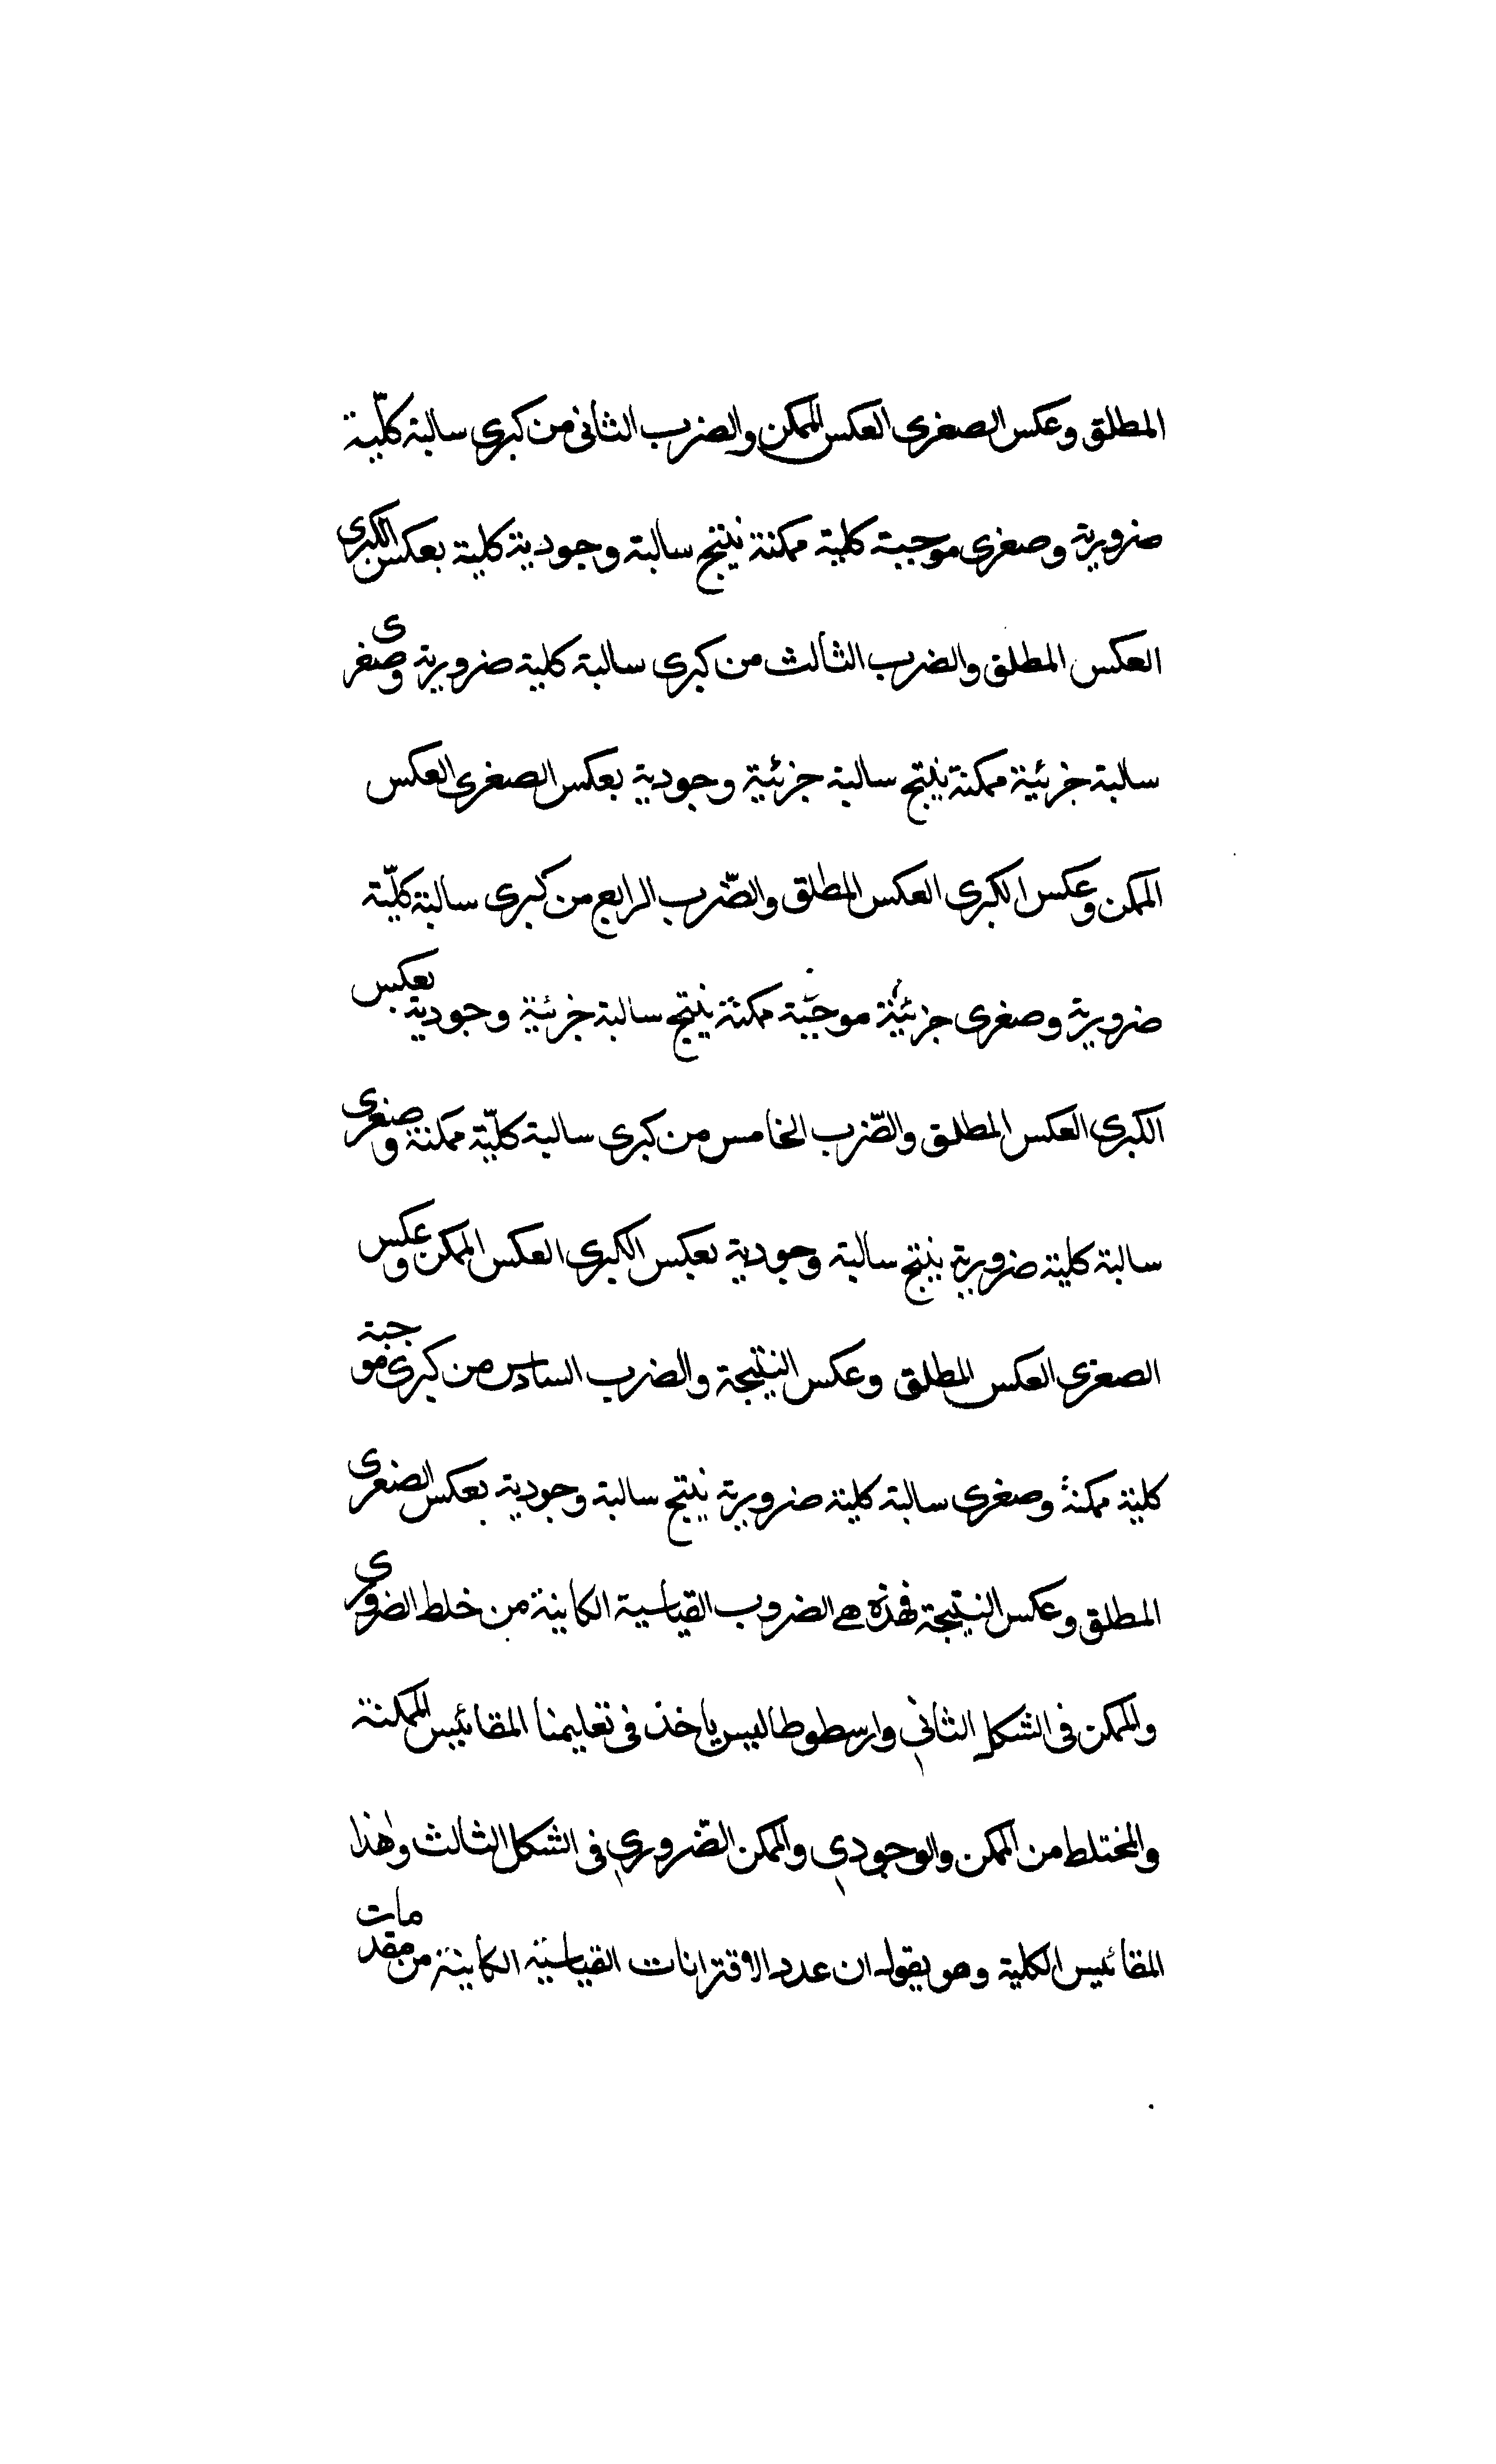 المطلق وعكس الصغرى العكس الممكن والضرب الثانى من كبرى سالبة كلّية
ضرورية وصغرى موجبة كلية ممكنة ينتج سالبة وجودية كلية بعكس الكبرى
العكس المطلق والضرب الثالث من كبرى سالبة كلية ضرورية وصغرى
سالبة جزئية ممكنة ينتج سالبة جزئية وجودية بعكس الصغرى العكس
الممكن وعكس الكبرى العكس المطلق والضّرب الرابع من كبرى سالبة كلّية
ضرورية وصغرى جزئية موجبة ممكنة ينتج سالبة جزئية وجودية بعكس
الكبرى العكس المطلق والضّرب الخامس من كبرى سالبة كلّية ممكنة وصغرى
سالبة كلية ضرورية ينتج سالبة وجودية بعكس الكبرى العكس الممكن وعكس
الصغرى العكس المطلق وعكس النتيجة والضرب السادس من كبرى موجبة
كلية ممكنة وصغرى سالبة كلية ضرورية ينتج سالبة وجودية بعكس الصغرى
المطلق وعكس النتيجة فهذه هي الضروب القياسية الكاينة من خلط الضرورى
والممكن فى الشكل الثاني وارسطوطاليس ياخذ فى تعليمنا المقائيس الممكنة
والمختلط من الممكن والوجودي والممكن الضّروري فى الشكل الثالث وهذا
المقائيس الكلية وهو يقول ان عدد الاقترانات القياسية الكاينة من مقدمات